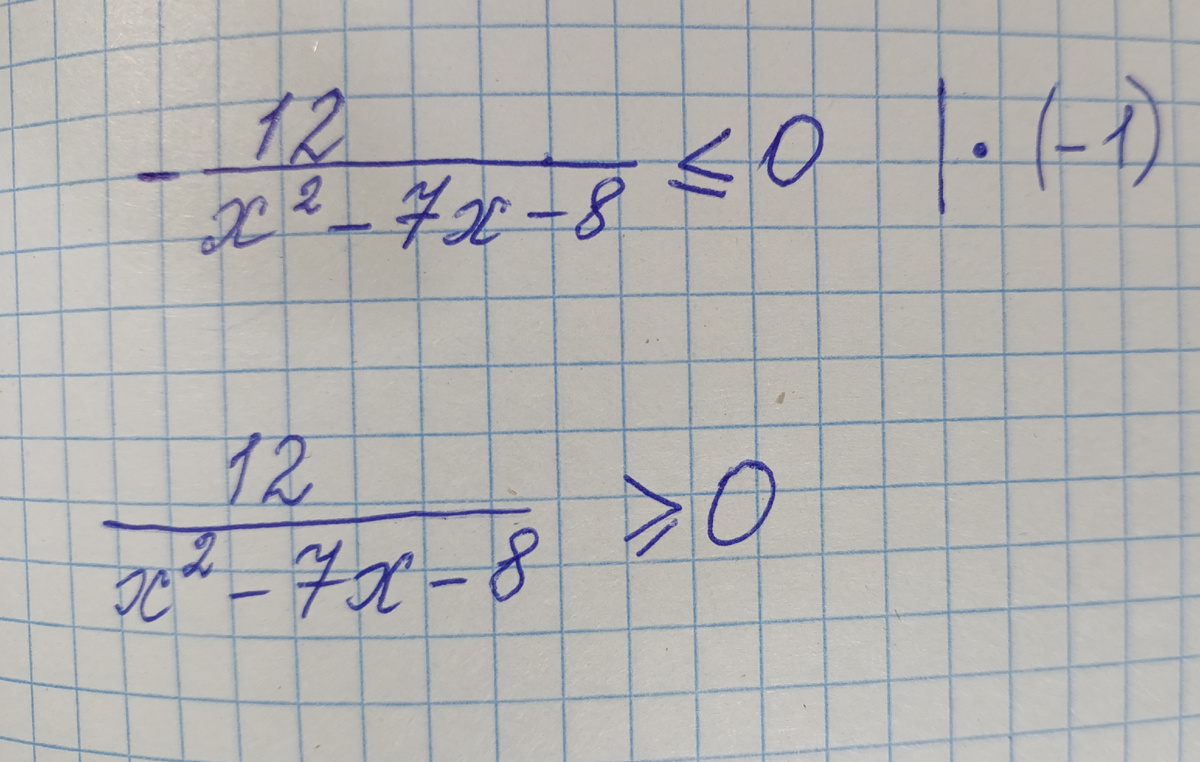 - 12/(x² - 7x - 8) ≤ 0 | · (-1)
12/(x² - 7x - 8) ≥ 0